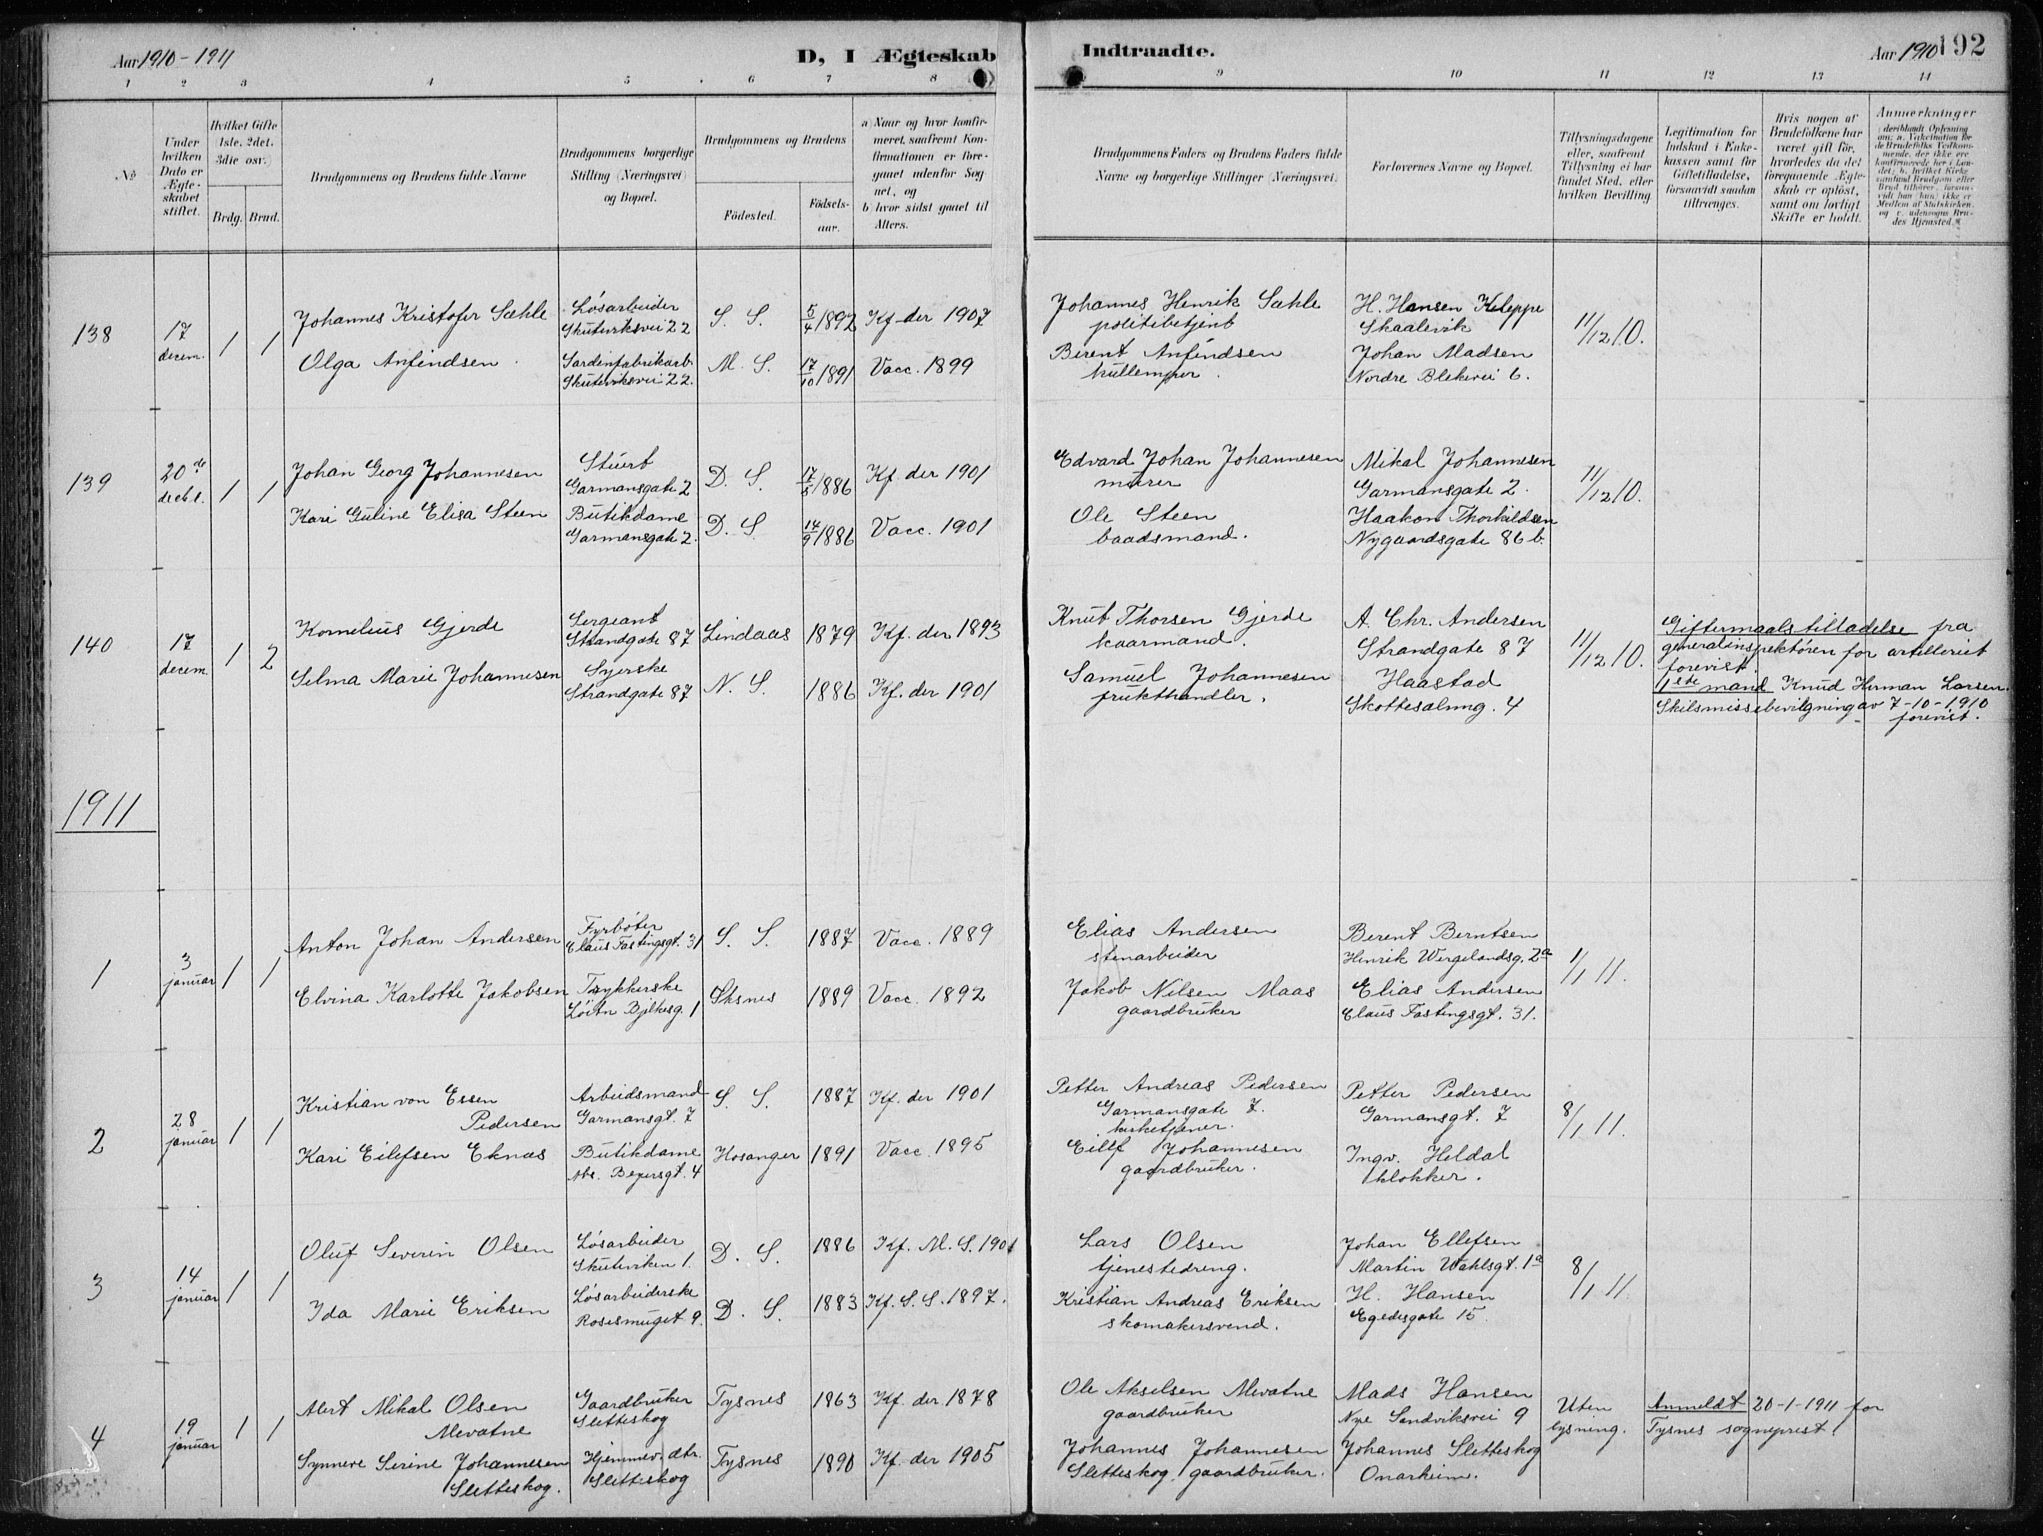 Aar 1910-1911
D, I Ægteskab Indtraadte.
Aar 1910 192
1 2 3 4 5 6 7 8 9 10 11 12 13 14
No
Under hvilken Dato er Ægteskabet stiftet.
Hvilket Gifte 1ste. 2det. 3die osv.
Brdg. Brud.
Brudgommens og Brudens fulde Navne
Brudgommens borgerlige Stilling (Næringsvei) og Bopæl.
Brudgommens og Brudens
Födested. Födselsaar.
a) Naar og hvor konfirmeret, saafremt Konfirmationen er foregaaet udenfor Sognet, og
b) hvor sidst gaaet til Alters.
Brudgommens Faders og Brudens Faders fulde Navne og borgerlige Stillinger (Næringsvei).
Forlovernes Navne og Bopæl.
Tillysningsdagene eller, saafremt Tillysning ei har fundet Sted, efter hvilken Bevilling.
Legitimation for Indskud i Enkekassen samt for Giftetilladelse, forsaavidt saadan tiltrænges.
Hvis nogen af Brudefolkene har været gift før, hvorledes da det foregaaende Ægteskab er opløst, samt om lovligt Skifte er holdt.
Anmerkninger
138 17 decem. 1 1
Johannes Kristofer Sæhle
Løsarbeider
Skuteviksvei 22
S. S. 5/4 1892 Kf. der 1907
Johannes Henrik Sæhle
politibetjent
H. Hansen Kleppe
Skaalevik
11/12 10.
Olga Anfindsen
Sardinfabrikarb.
Skuteviksvei 22.
M. S. 17/10 1891 Vacc. 1899
Berent Anfindsen
kullemper.
Johan Madsen
Nordre Blekevei 6.
139 20de decbr. 1 1
Johan Georg Johannesen
Stuerb
Garmansgate 2
D. S. 17/5 1886 Kf. der 1901
Edvard Johan Johannesen
murer
Mikal Johannesen
Garmansgate 2.
11/12 10.
Kari Guline Elisa Steen
Butikdame
Garmansgate 2.
D. S. 14/9 1886 Vacc. 1901
Ole Steen
baadsmand.
Haakon Thorkildsen
Nygaardsgate 86 b.
140 17 decem. 1 2
Kornelius Gjerde
Sergeant
Strandgate 87
Lindaas 1879 Kf. der 1893
Knut Thorsen Gjerde
kaarmand.
A. Chr. Andersen
Strandgate 87
11/12 10.
Giftermaalstilladelse fra
generalinspektören for artilleriet
forevist.
1ste mand Knud Herman Larsen.
Skilsmissebevilgning av 7-10-1910
forevist.
Selma Marie Johannesen
Syerske
Strandgate 87
N. S. 1886 Kf. der 1901
Samuel Johannesen
frukthandler.
Haastad
Skottesalmg. 4
1911
1 3 januar 1 1
Anton Johan Andersen
Fyrbøter
Claus Fastingsgt. 31
S. S. 1887 Vacc. 1889
Elias Andersen
stenarbeider
Berent Berntsen
Henrik Wergelandsg. 2a
1/1 11.
Elvina Karlotte Jakobsen
Trykkerske
Løitn Bjelkesg. 1
1889 Vacc. 1892
Jakob Nilsen Maas
gaardbruker
Elias Andersen
Claus Fastingsgt. 31.
2 28 januar 1 1
Kristian von Essen
Pedersen
Arbeidsmand
Garmansgt. 7
S. S. 1887 Kf. der 1901
Petter Andreas Pedersen
Garmansgate 7.
kirketjener.
Petter Pedersen
Garmansgt. 7
8/1 11.
Kari Eilefsen Eknæs
Butikdame
Abs. Beyersgt. 4
Hosanger 1891 Vacc. 1895
Eillf Johannesen
gaardbruker.
Ingv. Heldal
klokker.
3 14 januar 1 1
Oluf Severin Olsen
Løsarbeider
Skuteviken 1.
D. S. 1886 Kf. M. S. 1901
Lars Olsen
tjenestedreng.
Johan Ellefsen
Martin Wahlsgt. 1a
8/1 11.
Ida Marie Eriksen
Løsarbeiderske
Rosesmuget 9.
D. S. 1883 Kf. S. S. 1897.
Kristian Andreas Eriksen
skomakersvend.
H. Hansen
Egedesgate 15.
4 19 januar 1 1
Alert Mikal Olsen
Alevatne
Gaardbruker
Sletteskog
Tysnes 1863 Kf. der 1878
Ole Akselsen Alevatne
gaardbruker
Mads Hansen
Nye Sandviksvei 9
Uten lysning.
Anmeldt 20-1-1911 for
Tysnes sogneprest
Synneve Serine Johannesen
Sletteskog.
Hjemmev. dtr.
Sletteskog
Tysnes 1890 Kf. der 1905
Johannes Johannesen
Sletteskog, gaardbruker.
Johannes Sletteskog
Onarheim.